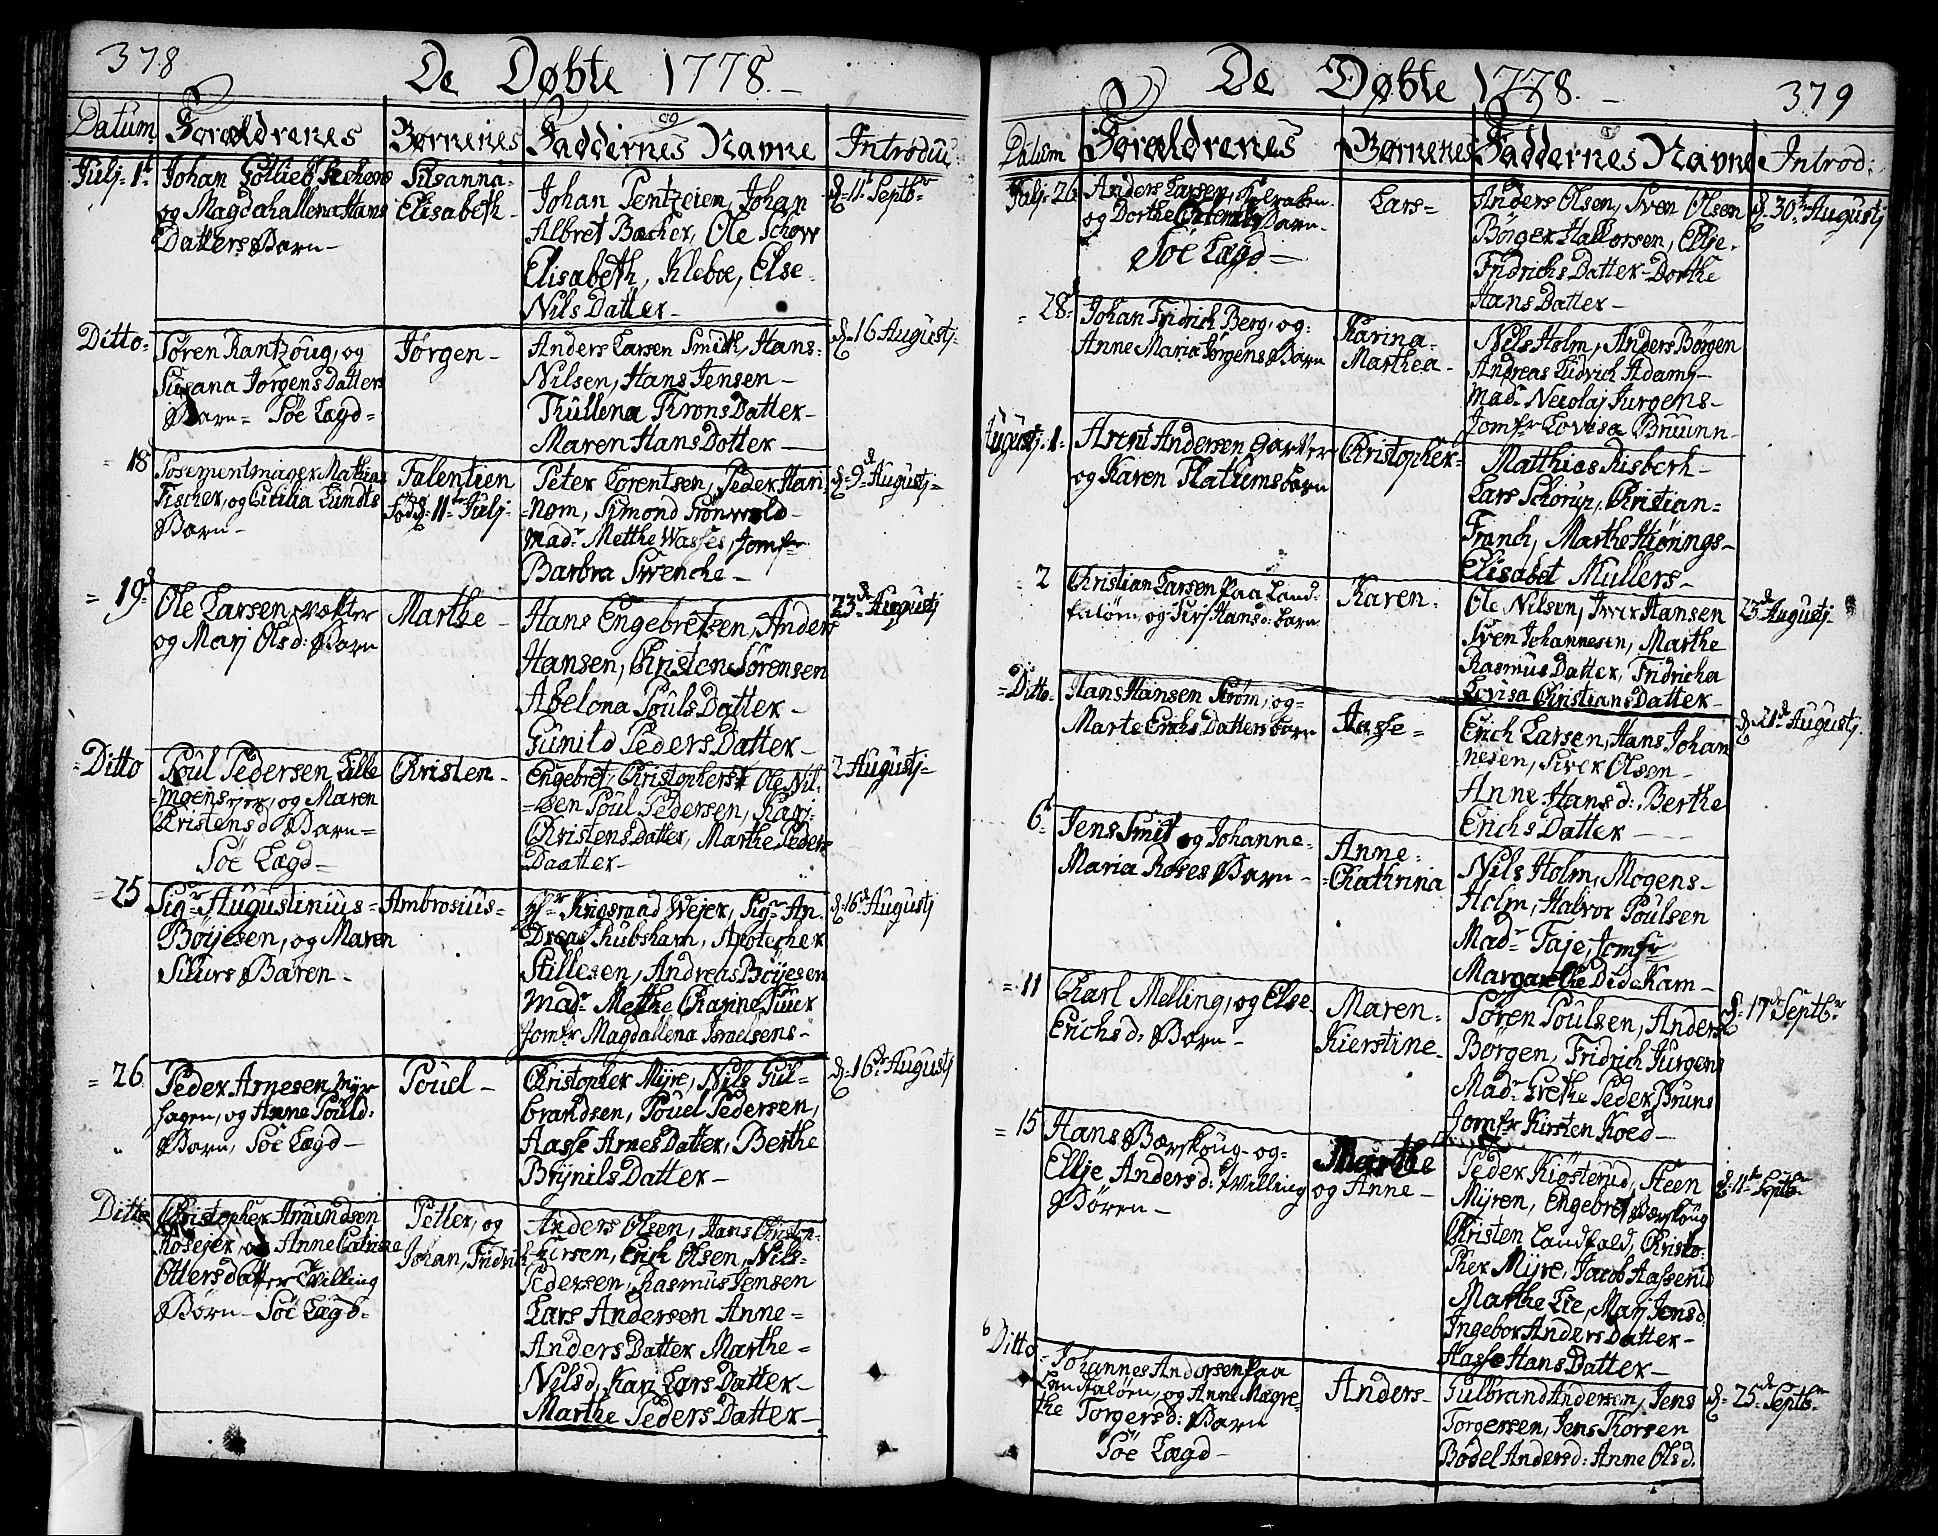 378
De Døbte 1778.
Datum Forældrenes Børnenes Faddernes Navne Introduc:
Julj 1t
Johan Gotlieb
og Magdahallena Hans
Datters Barn
Susanna
Elisabeth
Johan Pentzeien, Johan
Albret Backer, Ole Schow
Elisabeth, Klebœ, Else
Nils Datter
d. 11t Septbr
Ditto
Søren Rantzoug, og
Susana Jørgens Datters
Barn Søe Lægd
Jørgen
Anders Larsen Smith, Hans
Nilsen, Hans Jensen
Thullena Throns Datter
Maren Hans Dotter
d. 16 Augustj
18
Posementmager Mathias
Fischer, og Cicilia Lundts
Barn
Falentien
Fød d. 11te Julj
Peter Lorentsen, Peder Han
nom, Simond Grønwold
Madr Metthe Wasses, Jomfr
Barbra Swencke
d. 9d Augustj
19d
Ole Larsen, Vækter
og Marj Olsd: Barn
Marthe
Hans Engebretsen, Anders
Hansen, Christen Sørensen
Abelona Pouls Datter
Gunild Peders Datter
23de Augustj
Ditto
Poul Pedersen Lille
og Maren
Christensd Barn
Søe Lægd
Christen
Engebret, Christophers, Ole Nil
sen Poul Pedersen, Karj
Christens Datter, Marthe Peders
Daatter
2 Augustj
25
Sigr Augustinius
Boÿesen, og Maren
Barn
Ambrosius
Hr Kingsraad Wejer, Sigr An
Dreas Kubsham, Apotecher
Stillesen, Andreas Boÿesen
Madr Metthe Charine Tuur
Jomfr Magdallena Israelsens
d. 16de Augustj
26
Peder Arnesen Myr
hagen, og Anne Pouls D:
Barn, Søe Lægd
Pouel
Christopher Mÿre, Nils Gul
brandsen, Pouel Pedersen,
Aasse Arnes Datter, Berthe
Brÿnils Datter
d. 16de Augustj
Ditto
Christopher Amundsen
Rosejer, og Anne Catrine
Ottersdatter Tvilling
Børn Søe Lægd
Petter, og
Johan, Fridrich
Anders Olsen, Hans Christoph
ersen, Erich Olsen, Nils
Pedersen, Rasmus Jensen
Lars Andersen Anne
Anders Datter Marthe
Nilsd, Kari Lars Datter
Marthe Peders Datter
De Døbte 1778.
379
Datum Forældrenes Børnenes Faddernes Navne Introd:
Julj 26
Anders Larsen,
og Dorthe Barn
Søe Lægd
Lars
Anders Olsen, Sven Olsen
Børger Hallorsen, Ellje
Fridrichs Datter Dorthe
Hans Datter
d. 30te Augustj
28
Johan Fridrich Berg, og
Anne Maria Jørgens Barn
Karina
Marthea
Nils Holm, Anders Børgen
Andreas Ludvich Adamj
Madr Necolaj Jurgens
Jomfr Lovisa Bruunn
Augustj 1
Arent Andersen Garver
og Karen Platums barn
Christopher
Matthias Risberh
Lars Schorup, Christian
Franch, Marthe Hiørings
Elisabet Mullers
2
Christian Larsen Paa Land
faløen, og Hansd: barn
Karen
Ole Nilsen, Iver Hansen
Sven Johannesen, Marthe
Rasmus Datter, Fridricha
Lovisa Christians Datter
23de Augustj
Ditto
Hans Hansen Strøm, og
Marte Erichs Datters barn
Aasse
Erich Larsen, Hans Johan
nesen, Siver Olsen
Anne Hansd: Berthe
Erichs Datter
d. 21de Augustj
6t
Jens Smit og Johanne
Maria Roses Barn
Anne
Cathrina
Nils Holm, Mogens
Holm, Halvor Poulsen
Madr Faje, Jomfr
Margarethe Didekam
11
Charl Melling, og Else
Erichsd: Barn
Maren
Kierstine
Søren Poulsen, Anders
Børgen, Fridrich Jurgens
Madr Grethe Peder Bruns
Jomfr Kirsten Koed
d. 17de Septbr
15
Hans Bærskoug og
Ellje Andersd: Tvilling
Børen
Marthe
og Anne
Peder Kiøsterud, Steen
Mÿren, Engebret Bærskoug
Christen Landfald, Christo
Pher Mÿre, Jacob Aasserud
Marthe Lie, Marj Jensd
Ingebor Anders Datter
Aasse Hans Datter
d. 11te Septbr
Ditto
Johannes Andersen Paa
Landfaløen, og Anne Magre
the Torgersd: Barn
Søe Lægd
Anders
Gulbrand Andersen, Jens
Torgersen, Jens Thorsen
Bodel Andersd: Anne Olsd.
d. 25de Septbr